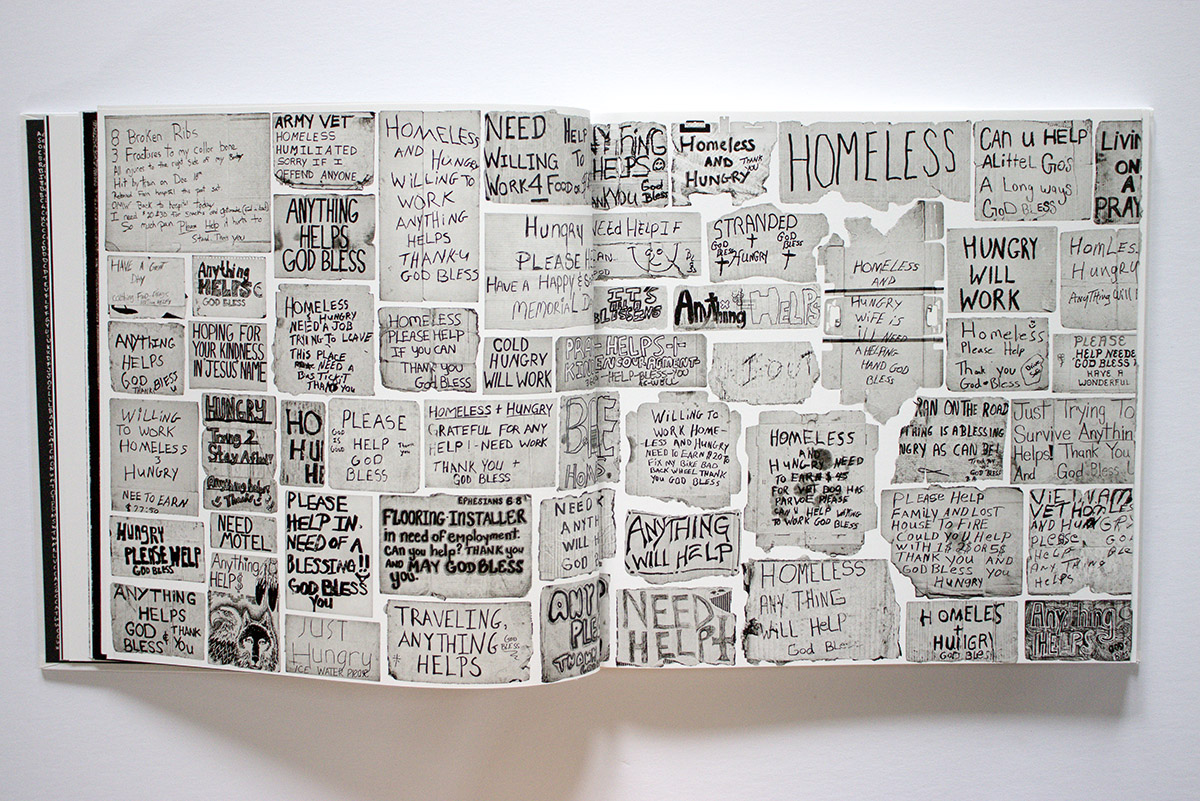 8 Broken Ribs
3 Fractures to my collar bone
All injures to the right side of my Body
Hit by train on Dec 18th
OMW Back to hospital Today
So much pain Please Help if
Thank you
ARMY VET
HOMELESS
HUMILIATED
SORRY IF I
OFFEND ANYONE
ANYTHING
HELPS
GOD BLESS
HOMELESS
AND HUNGRY
WILLING TO
WORK
ANYTHING
HELPS
THANK-U
GOD BLESS
NEED HELP
WILLING TO
WORK 4 FOOD
HAVE A Good
DAY
Anything
HELPS
GOD BLESS
HOMELESS
& HUNGRY
NEED A JOB
TRYING TO LEAVE
THIS PLACE
NEED A
BUS TICKIT
THANK YOU
HOMELESS
PLEASE HELP
IF YOU CAN
THANK YOU
God BLESS
Hungry
PLEASE
HAVE A HAPPY &
MEMORIAL
ANYTHING
HELPS
GOD BLESS
THANK
HOPING FOR
YOUR KINDNESS
IN JESUS NAME
COLD
HUNGRY
WILL WORK
WILLING
TO WORK
HOMELESS
3
HUNGRY
NEE TO EARN
$22.50
HUNGRY
Trying 2
Stay Afloat
Anything helps
Thanks
HO
HU
PLEASE
HELP
GOD
BLESS
GOD
IS
GOOD
Thank
you
HOMELESS + HUNGRY
GRATEFUL FOR ANY
HELP I-NEED WORK
THANK YOU +
GOD BLESS
HUNGRY
PLEASE HELP
GOD BLESS
NEED
MOTEL
PLEASE
HELP IN
NEED OF A
BLESSING!!
GOD BLESS
YOU
EPHESIANS 6:8
FLOORING-INSTALLER
in need of employment.
can you help? THANK you
AND MAY GOD BLESS
you.
NEED
ANYTH
WILL H
GOD
ANYTHING
HELPS
GOD &
BLESS
THANK
YOU
Anything
HELP$
JUST
Hungry
ICE WATER PLEASE
TRAVELING,
ANYTHING
HELPS
GOD
BLESS
ANY
PLE
THANK
HELPS
THANK YOU
God
Bless
Homeless
AND
HUNGRY
THANK
YOU
HOMELESS
CAN U HELP
ALitteL GOS
A Long ways
GOD BLESS
LIVIN
ON
A
PRAY
NEED HELP IF
STRANDED
+
HUNGRY
GOD
BLESS
GOD
BLESS
HOMELESS
AND
HUNGRY
WIFE IS
ill NEED
A HELPING
HAND GOD
BLESS
HUNGRY
WILL
WORK
HomLES
Hungry
AnyThing Will
IT'S
BLESSING
Anything HELPS
HELPS
ENCOURAGEMENT
HELP-BLESS-YOU
I-OUT
Homeless
Please Help
Thank you
God-Bless
PLEASE
HELP NEEDE
GOD BLESS
HAVE A
WONDERFUL
WILLING TO
WORK HOME-
LESS AND HUNGRY
NEED TO EARN $20
FIX MY BIKE BAD
BACK WHEEL THANK
YOU GOD BLESS
HOMELESS
AND
HUNGRY NEED
TO EARN $45
FOR VET DOG HAS
PARVOE PLEASE
CAN U HELP WILLING
TO WORK GOD BLESS
RAN ON THE ROAD
THING IS A BLESSING
NGRY AS CAN BE!
GOD BLESS
Just Trying To
Survive Anythin
Helps! Thank You
And God Bless
ANYTHING
WILL HELP
PLEASE HELP
FAMILY AND LOST
HOUSE TO FIRE
COULD YOU HELP
WITH 1$ 2$ OR 5$
THANK YOU AND
GOD BLESS YOU
HUNGRY
VIETNAM
VET HOMEL
AND HUNGR
PLEASE,
HELP
ANYTHING
HELPS
GO
BLE
NEED
HELP
HOMELESS
ANY THING
Will HELP
God Bless
HOMELES
+
HUNGRY
GOD BLESS
Anything
HELPS